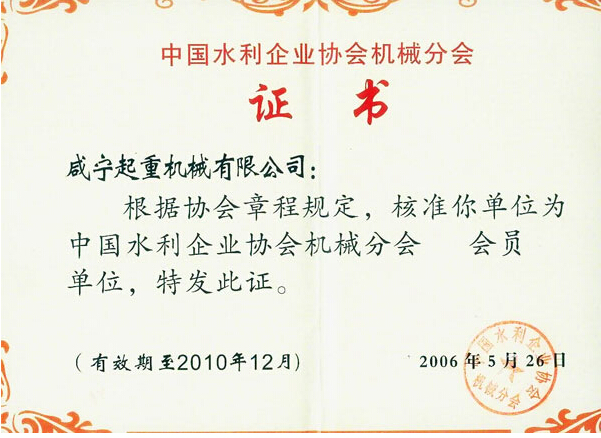 中国水利企业协会机械分会
证书
咸宁起重机械有限公司：
根据协会章程规定，核准你单位为
中国水利企业协会机械分会 会员
单位，特发此证。
(有效期至2010年12月)
2006年5月26日
中国水利企业协会
机械分会